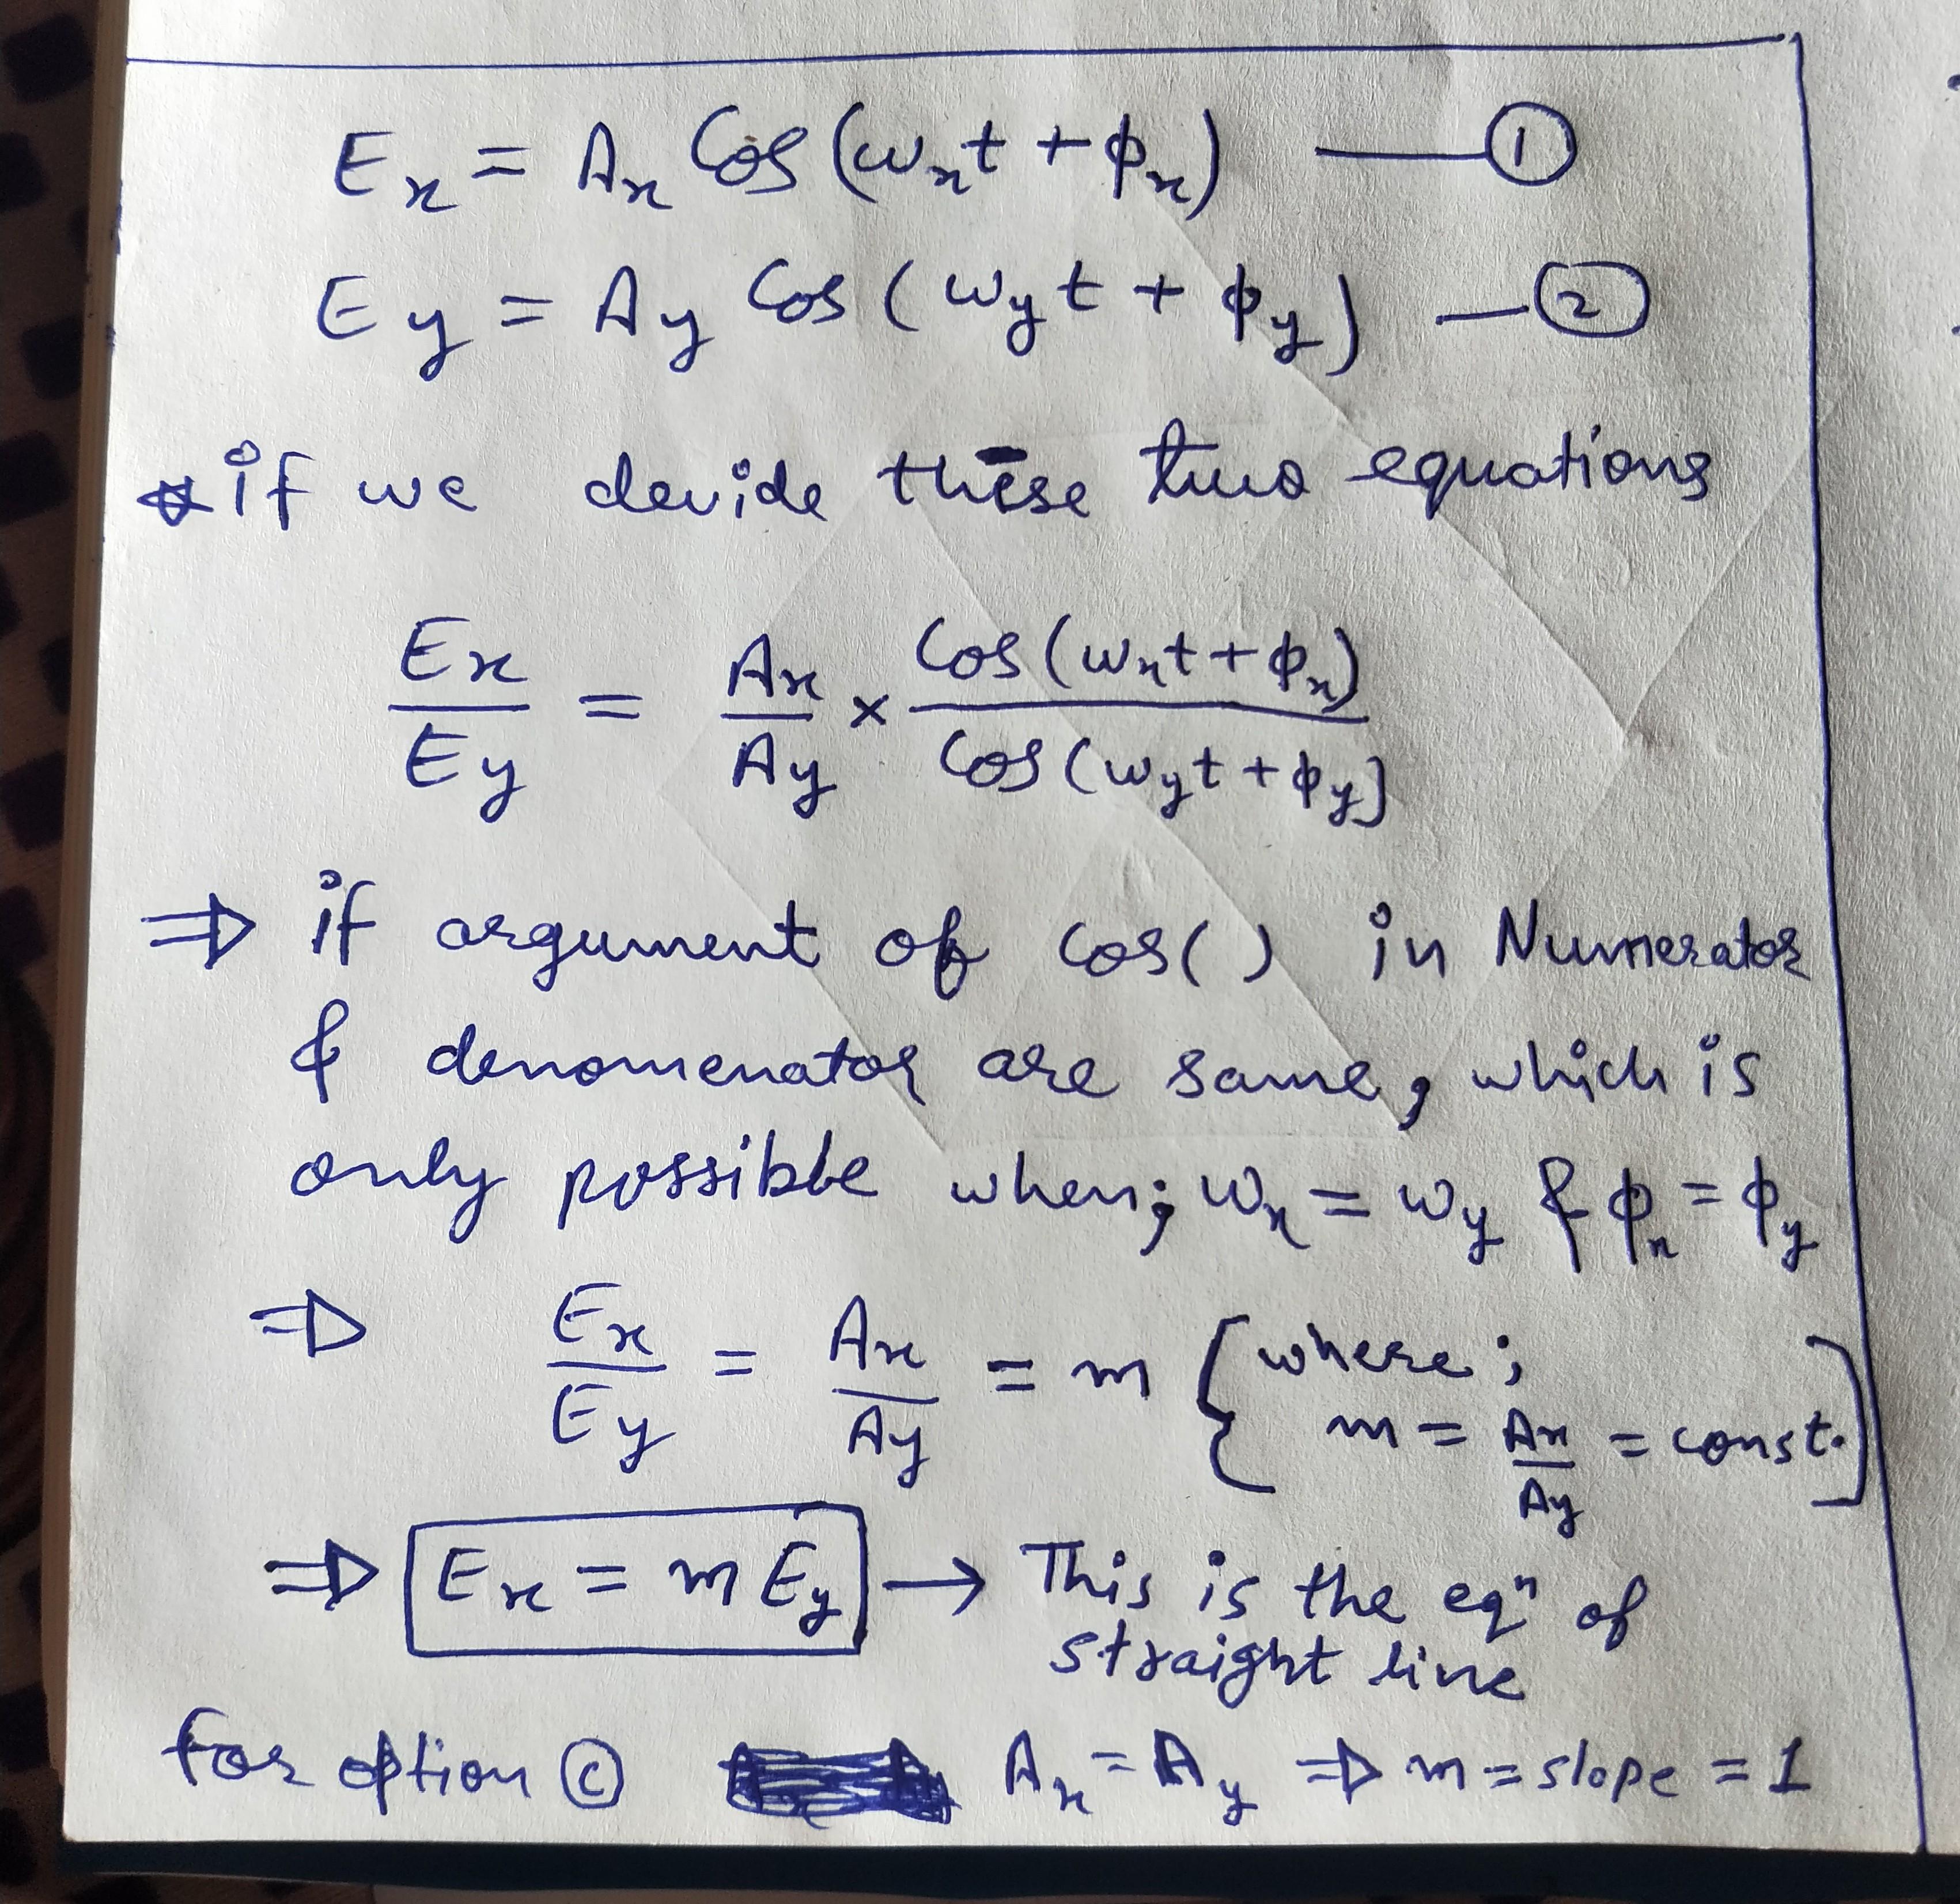 Ex = Ax Cos(ωxt + ϕx) — ①
Ey = Ay Cos(ωyt + ϕy) — ②
☆ if we devide these two equations
Ex/Ey = Ax/Ay × Cos(ωxt + ϕx)/Cos(ωyt + ϕy)
⇒ if argument of cos() in Numerator
& denomenator are same, which is
only possible when; ωx = ωy & ϕx = ϕy
⇒ Ex/Ey = Ax/Ay = m {where;
m = Ax/Ay = const.}
⇒ Ex = m Ey → This is the eqⁿ of
straight line
for option ⓒ Ax = Ay ⇒ m = slope = 1